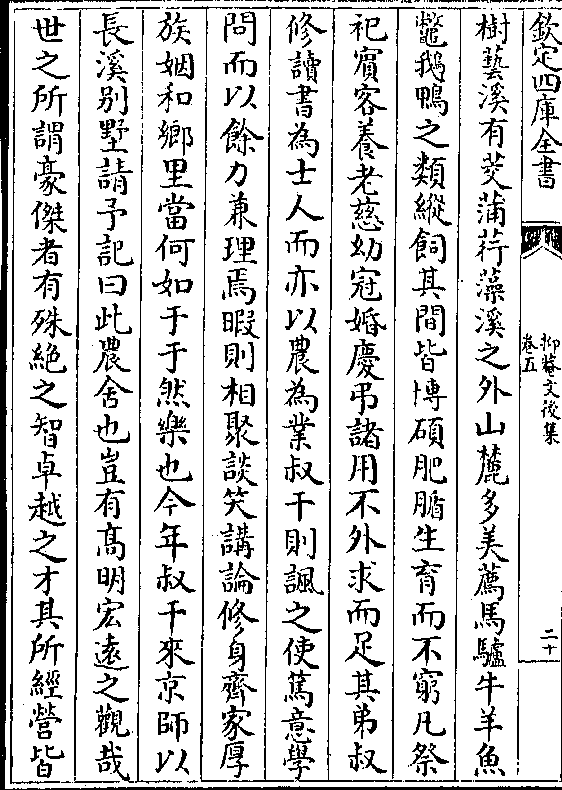 欽定四庫全書
抑菴文後集
卷五
二十
樹藝溪有芰蒲荇藻溪之外山麓多美薦馬驢牛羊魚
鼈鵝鴨之類縱飼其間皆博碩肥腯生育而不窮凡祭
祀賓客養老慈幼冠婚慶弔諸用不外求而足其弟叔
修讀書為士人而亦以農為業叔干則諷之使篤意學
問而以餘力兼理焉暇則相聚談笑講論修身齊家厚
族姻和鄉里當何如于于然樂也今年叔干來京師以
長溪别墅請予記曰此農舍也豈有髙明宏遠之觀哉
世之所謂豪傑者有殊絶之智卓越之才其所經營皆